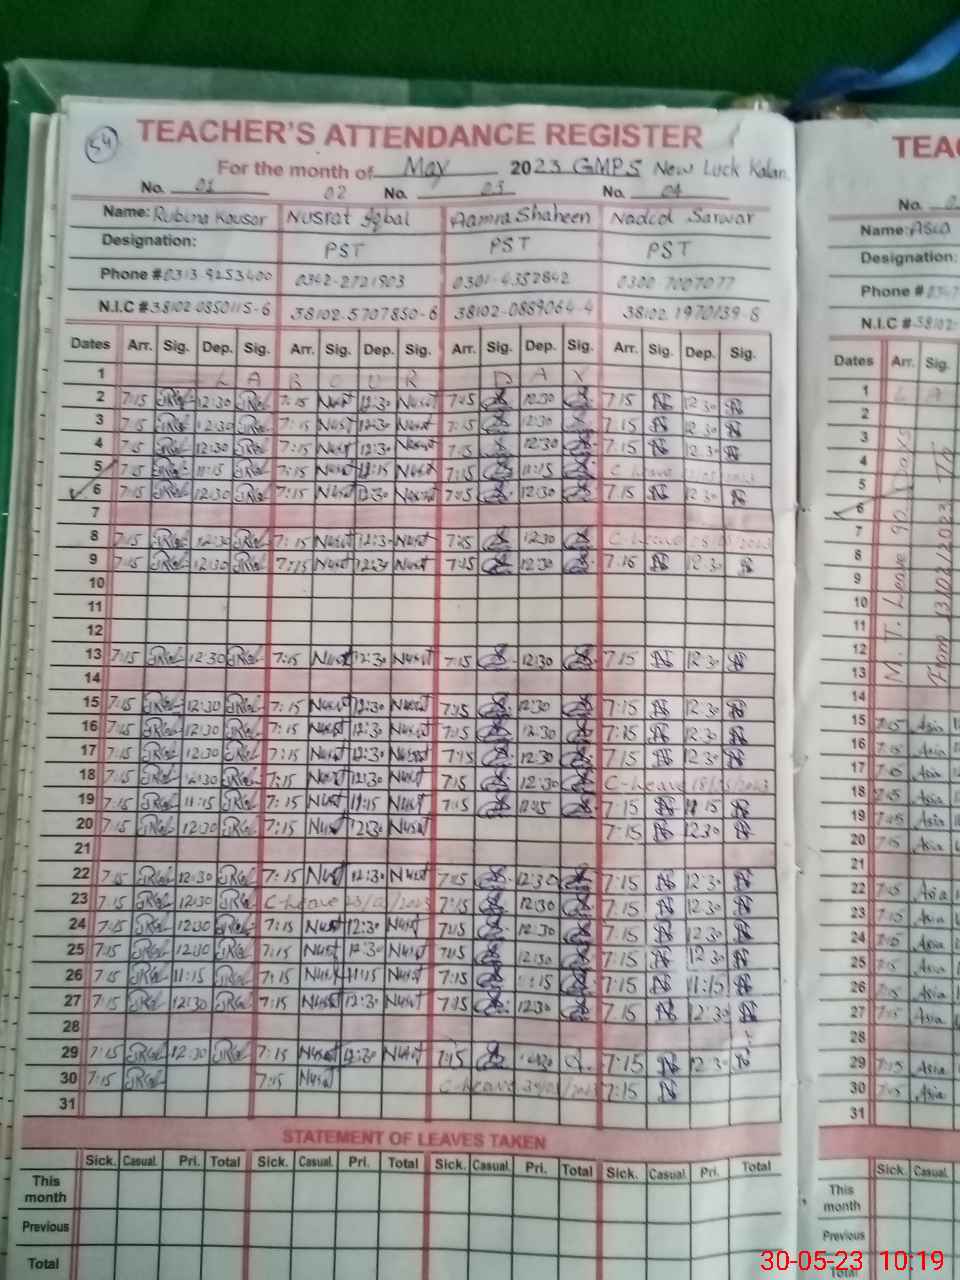 54
TEACHER'S ATTENDANCE REGISTER
For the month of May 2023 GMPS New Luck Kalan
No. 01 02 No. 03 No. 04
Name: Rubina Kousar Nusrat Iqbal Aamra Shaheen Nadeol Sarwar
Designation: PST PST PST
Phone # 0313-9253400 0342-2721903 0301-4352842 0300 7007077
N.I.C # 38102-0850115-6 38102-5707850-6 38102-0869064-4 38102 1970139-8
Dates Arr. Sig. Dep. Sig. Arr. Sig. Dep. Sig. Arr. Sig. Dep. Sig. Arr. Sig. Dep. Sig.
1 L A B O U R D A Y
2 7:15 12:30 7:15 Nusrat 12:30 Nusrat 7:15 12:30 7:15 N 12:30 N
3 7:15 12:30 7:15 Nusrat 12:30 Nusrat 7:15 12:30 7:15 N 12:30 N
4 7:15 12:30 7:15 Nusrat 12:30 Nusrat 7:15 12:30 7:15 N 12:30 N
5 7:15 11:15 7:15 Nusrat 11:15 Nusrat 7:15 11:15 C-Leave
6 7:15 12:30 7:15 Nusrat 12:30 Nusrat 7:15 12:30 7:15 N 12:30 N
7
8 7:15 12:30 7:15 Nusrat 12:30 Nusrat 7:15 12:30 C-Leave 08/05/2023
9 7:15 12:30 7:15 Nusrat 12:30 Nusrat 7:15 12:30 7:15 N 12:30 N
10
11
12
13 7:15 12:30 7:15 Nusrat 12:30 Nusrat 7:15 12:30 7:15 N 12:30 N
14
15 7:15 12:30 7:15 Nusrat 12:30 Nusrat 7:15 12:30 7:15 N 12:30 N
16 7:15 12:30 7:15 Nusrat 12:30 Nusrat 7:15 12:30 7:15 N 12:30 N
17 7:15 12:30 7:15 Nusrat 12:30 Nusrat 7:15 12:30 7:15 N 12:30 N
18 7:15 12:30 7:15 Nusrat 12:30 Nusrat 7:15 12:30 C-Leave 18/05/2023
19 7:15 11:15 7:15 Nusrat 11:15 Nusrat 7:15 7:15 N 11:15 N
20 7:15 12:30 7:15 Nusrat 12:30 Nusrat 7:15 N 12:30 N
21
22 7:15 12:30 7:15 Nusrat 12:30 Nusrat 7:15 12:30 7:15 N 12:30 N
23 7:15 12:30 C-Leave 7:15 12:30 7:15 N 12:30 N
24 7:15 12:30 7:15 Nusrat 12:30 Nusrat 7:15 12:30 7:15 N 12:30 N
25 7:15 12:30 7:15 Nusrat 12:30 Nusrat 7:15 12:30 7:15 N 12:30 N
26 7:15 11:15 7:15 Nusrat 11:15 Nusrat 7:15 11:15 7:15 N 11:15 N
27 7:15 12:30 7:15 Nusrat 12:30 Nusrat 7:15 12:30 7:15 N 12:30 N
28
29 7:15 12:30 7:15 Nusrat 12:30 Nusrat 7:15 7:15 N 12:30 N
30 7:15 7:15 Nusrat C-Leave 7:15 N
31
STATEMENT OF LEAVES TAKEN
Sick. Casual. Pri. Total Sick. Casual. Pri. Total Sick. Casual. Pri. Total Sick. Casual. Pri. Total
This month
Previous
Total
TEA
No.
Name: Asia
Designation:
Phone #
N.I.C # 38102-
Dates Arr. Sig.
1 L A
2
3
4
5
6
7
8
9
10
11
12
13
M.T. Leave 90 Days
From 13/02/2023 To
14
15 7:15 Asia
16 7:15 Asia
17 7:15 Asia
18 7:15 Asia
19 7:15 Asia
20 7:15 Asia
21
22 7:15 Asia
23 7:15 Asia
24 7:15 Asia
25 7:15 Asia
26 7:15 Asia
27 7:15 Asia
28
29 7:15 Asia
30 7:15 Asia
31
Sick. Casual.
This month
Previous
Total
30-05-23 10:19